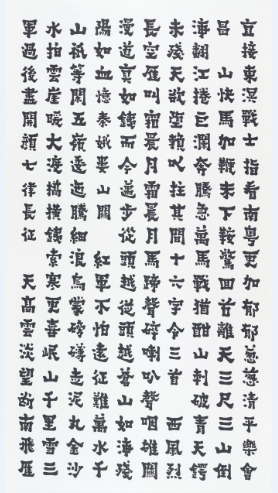 直接東溟戰士指看南粵更加郁郁葱葱清平樂會
昌 山快馬加鞭未下鞍驚回首離天三尺三山倒
海翻江捲巨瀾奔騰急萬馬戰猶酣山刺破青天鍔
未殘天欲墮賴以拄其間十六字令三首 西風烈
長空雁叫霜晨月霜晨月馬蹄聲碎喇叭聲咽雄關
漫道真如鐵而今邁步從頭越從頭越蒼山如海殘
陽如血憶秦娥婁山關 紅軍不怕遠征難萬水千
山祗等閑五嶺逶迤騰細浪烏蒙磅礴走泥丸金沙
水拍雲崖暖大渡橋橫鐵索寒更喜岷山千里雪三
軍過後盡開顔七律長征 天高雲淡望斷南飛雁